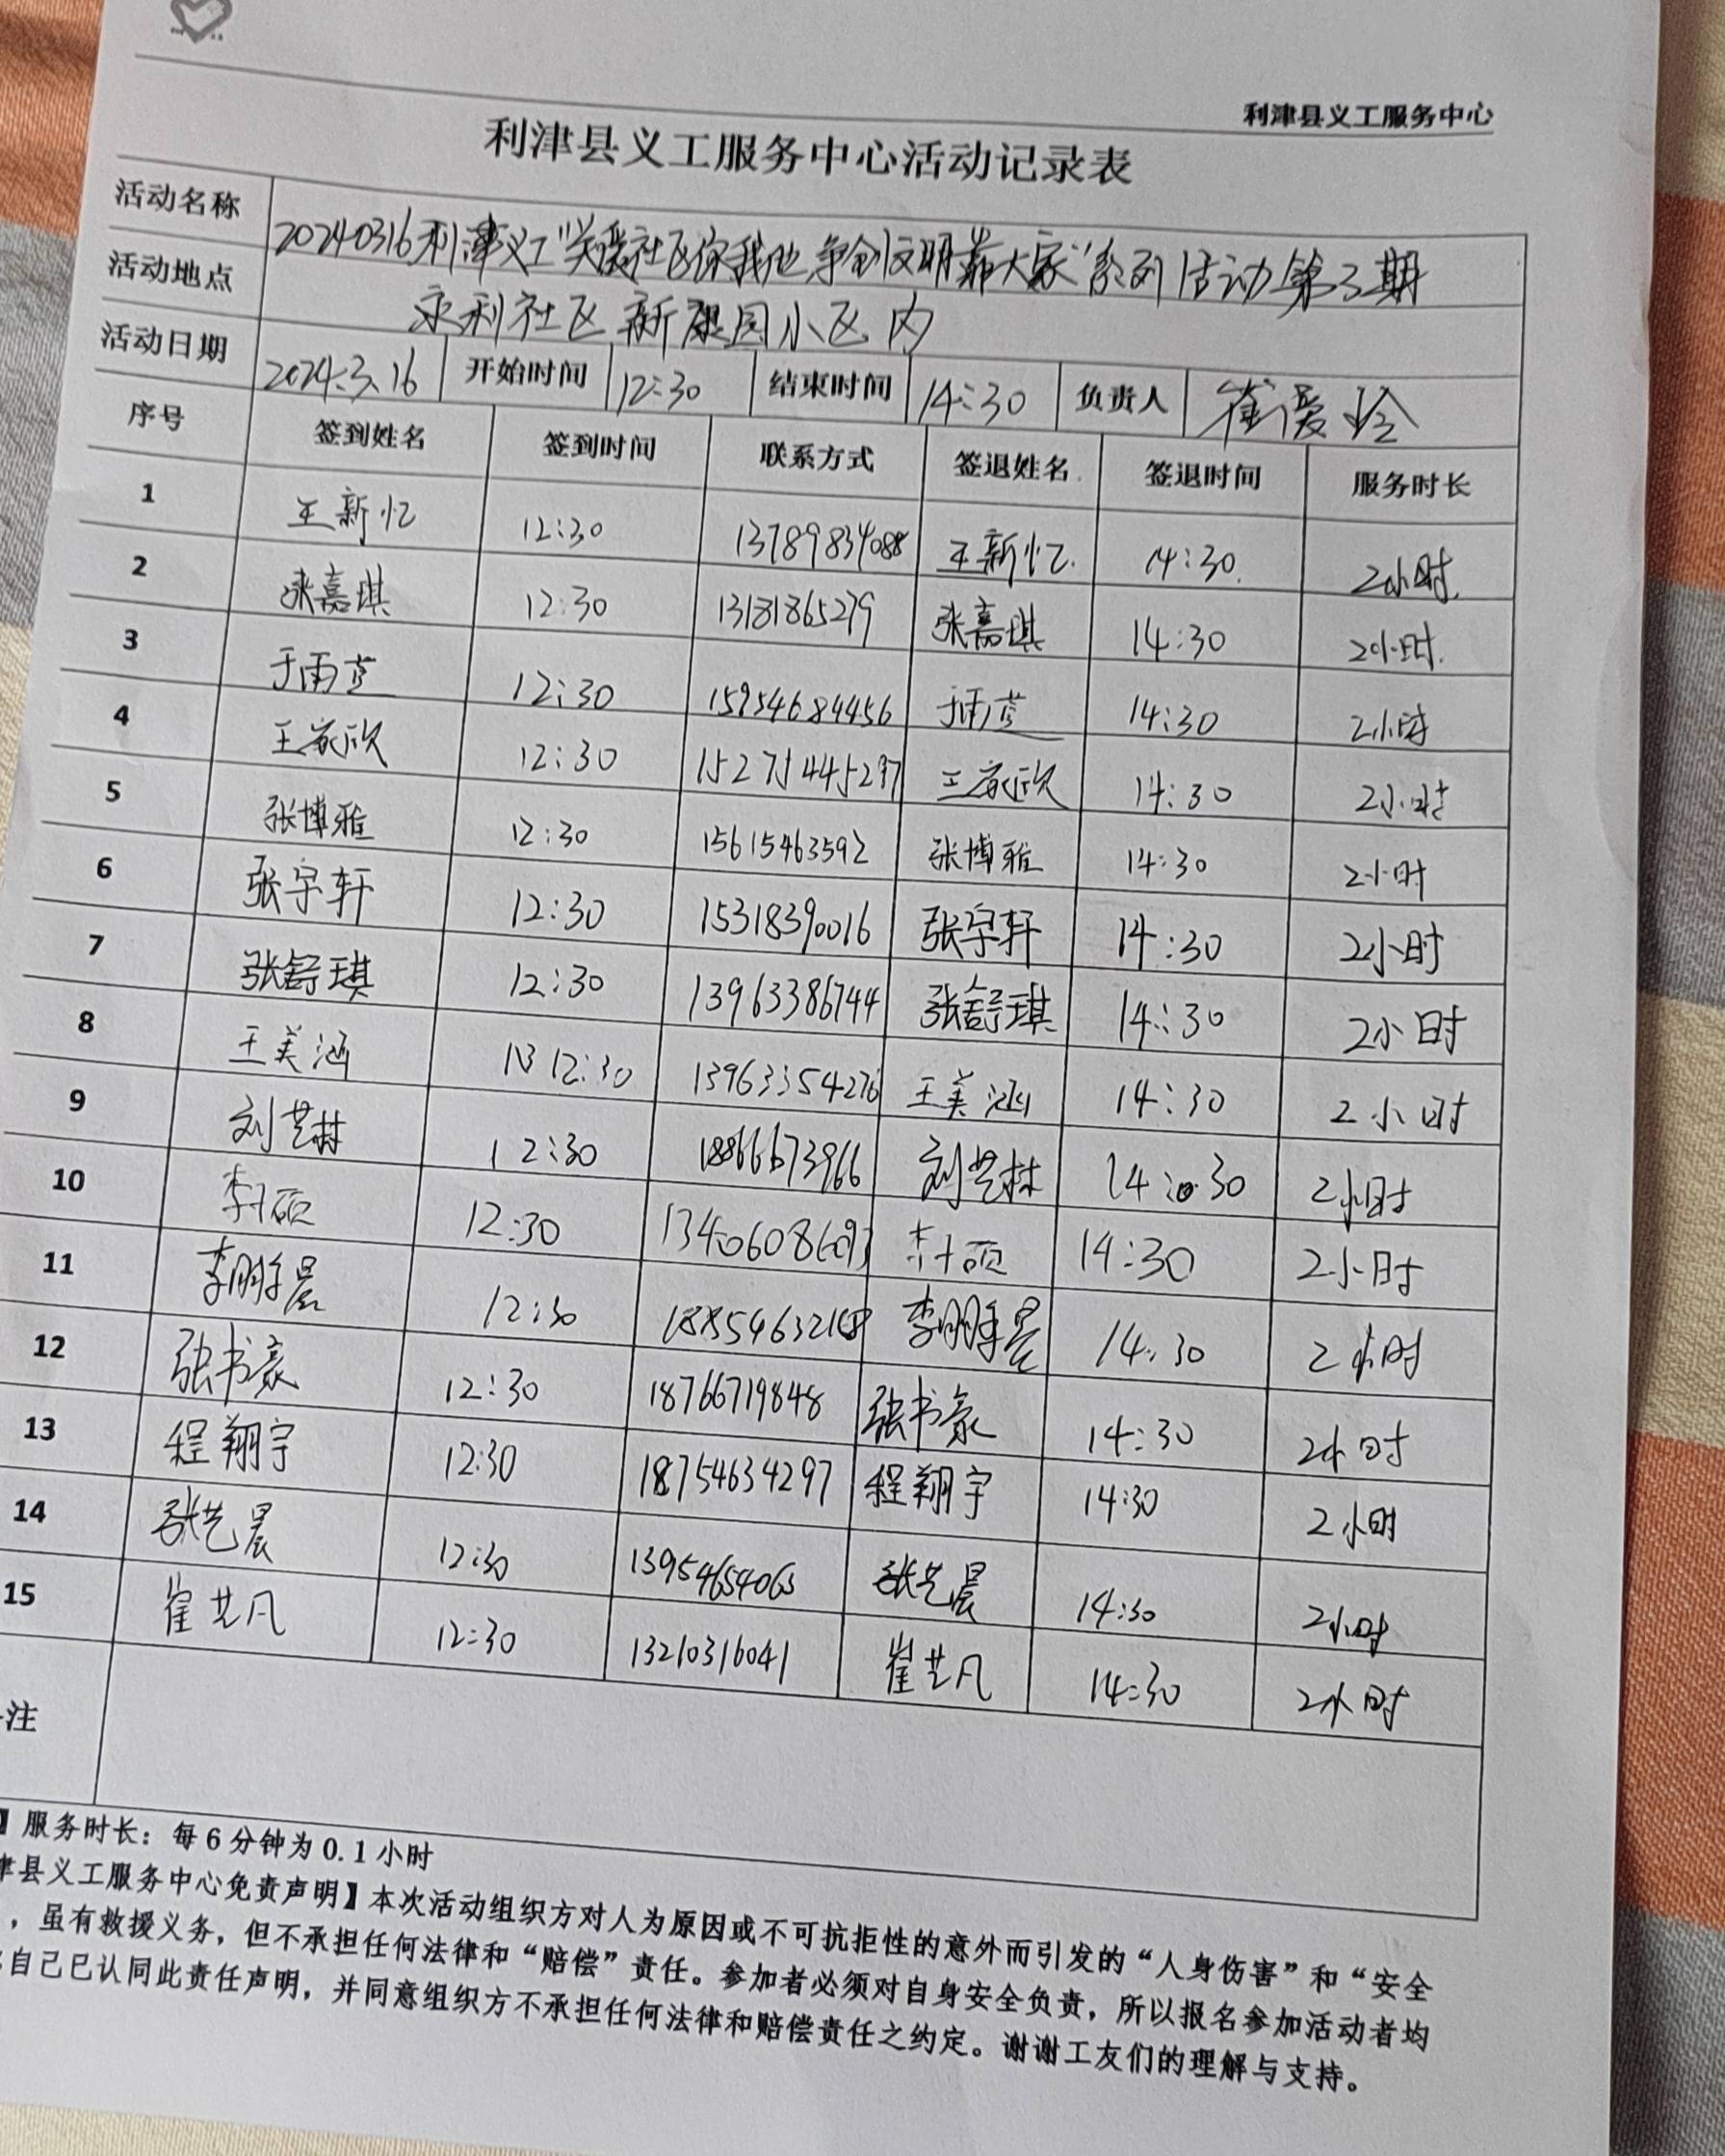 利津县义工服务中心
利津县义工服务中心活动记录表
活动名称 20240316利津义工“关爱社区你我他 争创文明靠大家”系列活动第3期
活动地点 永利社区新康园小区内
活动日期 2024.3.16 开始时间 12:30 结束时间 14:30 负责人 崔爱玲
序号 签到姓名 签到时间 联系方式 签退姓名 签退时间 服务时长
1 王新忆 12:30 13789834088 王新忆 14:30 2小时
2 张嘉琪 12:30 13181865279 张嘉琪 14:30 2小时
3 于雨萱 12:30 15954684456 于雨萱 14:30 2小时
4 王家欣 12:30 王家欣 14:30 2小时
5 张博雅 12:30 15615463592 张博雅 14:30 2小时
6 张宇轩 12:30 15318390016 张宇轩 14:30 2小时
7 张舒琪 12:30 13963386744 张舒琪 14:30 2小时
8 王美涵 12:30 13963354276 王美涵 14:30 2小时
9 刘艺林 12:30 18866673966 刘艺林 14:30 2小时
10 李硕 12:30 李硕 14:30 2小时
11 12:30 14:30 2小时
12 张书豪 12:30 18766719848 张书豪 14:30 2小时
13 程翔宇 12:30 18754634297 程翔宇 14:30 2小时
14 张艺晨 12:30 13954654063 张艺晨 14:30 2小时
15 崔艺凡 12:30 13210316041 崔艺凡 14:30 2小时
注
】服务时长：每6分钟为0.1小时
津县义工服务中心免责声明】本次活动组织方对人为原因或不可抗拒性的意外而引发的“人身伤害”和“安全
，虽有救援义务，但不承担任何法律和“赔偿”责任。参加者必须对自身安全负责，所以报名参加活动者均
自己已认同此责任声明，并同意组织方不承担任何法律和赔偿责任之约定。谢谢工友们的理解与支持。